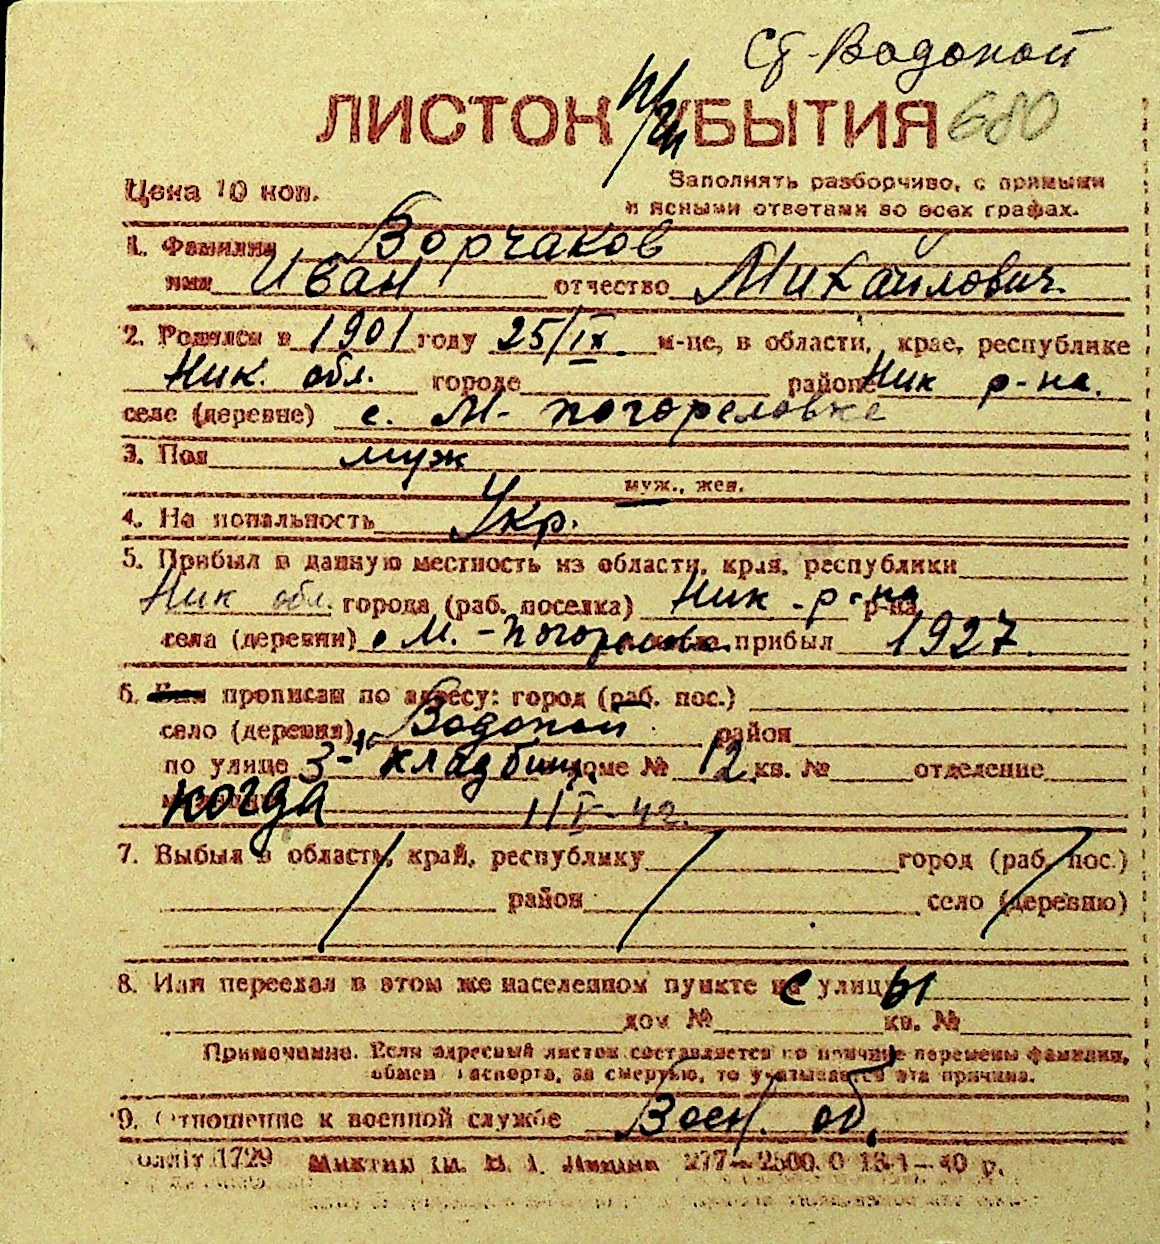 Ст-Водопой
ЛИСТОК ПРИБЫТИЯ 680
Цена 10 коп.
Заполнять разборчиво, с прямыми
и ясными ответами во всех графах.
1. Фамилия Ворчаков
имя Иван отчество Михайлович
2. Родился в 1901 году 25/IX м-це, в области, крае, республике
Ник. обл. городе районе Ник р-на.
селе (деревне) с. М-Погореловке
3. Пол муж
муж., жен.
4. Национальность Укр.
5. Прибыл в данную местность из области, края, республики
Ник обл. города (раб. поселка) Ник-р-на р-на
села (деревни) М.-Погорелова прибыл 1927
6. прописан по адресу: город (раб. пос.)
село (деревня) Водопой район
по улице 3-я Кладбищ. доме № 12 кв. № отделение
когда 1/I-42.
7. Выбыл в область, край, республику город (раб. пос.)
район село (деревню)
8. Или переехал в этом же населенном пункте с улицы
дом № кв. №
Примечание. Если адресный листок составляется по причине перемены фамилии,
обмен паспорта, за смертью, то указывается эта причина.
9. Отношение к военной службе Воен. об.
1729 277—2500.0 13-1—40 р.